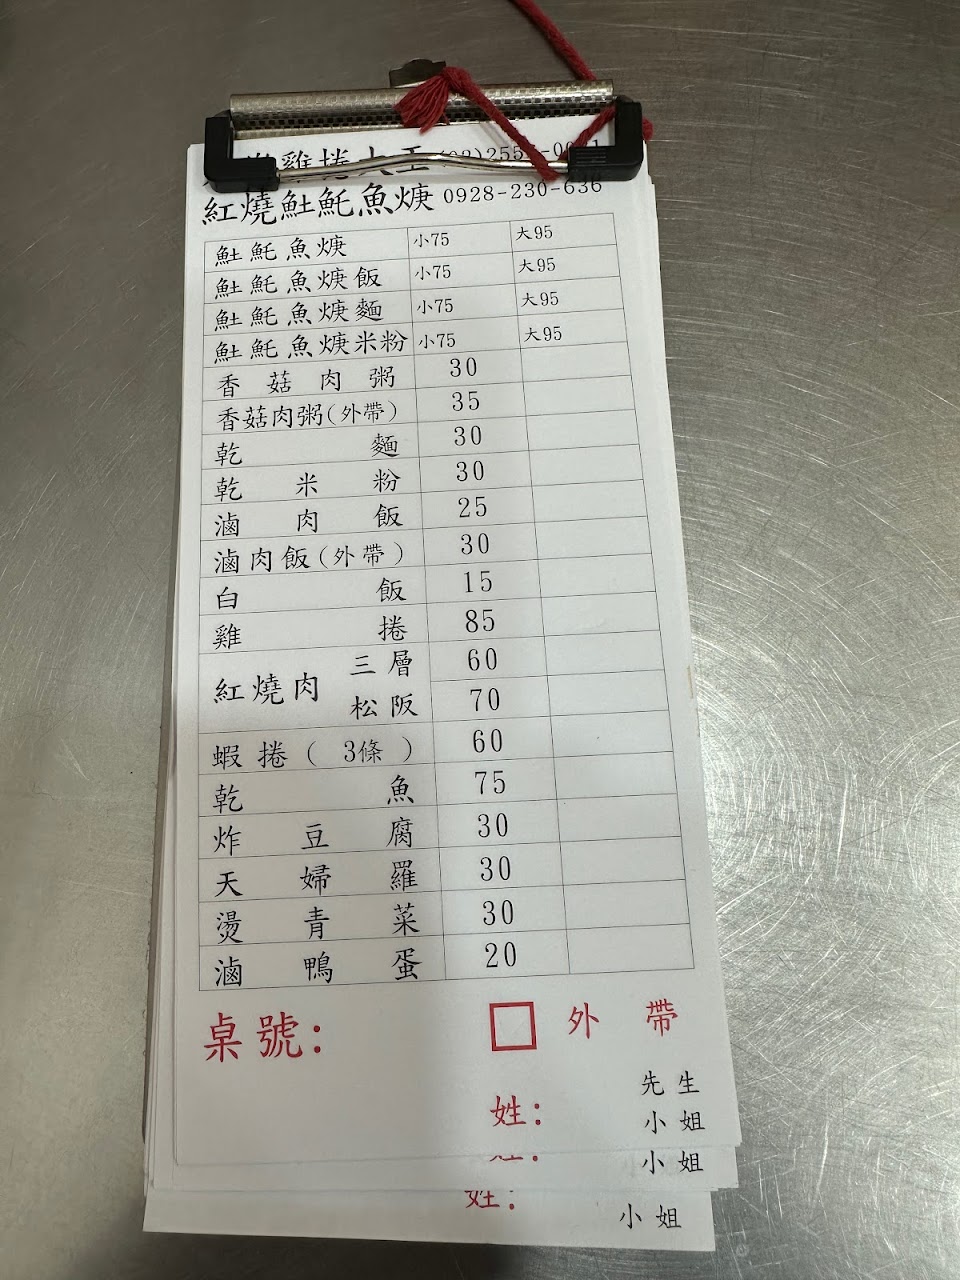 雞捲大王
紅燒魠魠魚焿 0928-230-636
魠魠魚焿 小75 大95
魠魠魚焿飯 小75 大95
魠魠魚焿麵 小75 大95
魠魠魚焿米粉 小75 大95
香菇肉粥 30
香菇肉粥(外帶) 35
乾麵 30
乾米粉 30
滷肉飯 25
滷肉飯(外帶) 30
白飯 15
雞捲 85
紅燒肉 三層 60
松阪 70
蝦捲(3條) 60
乾魚 75
炸豆腐 30
天婦羅 30
燙青菜 30
滷鴨蛋 20
桌號: □ 外帶
先生
姓: 小姐
小姐
姓: 小姐